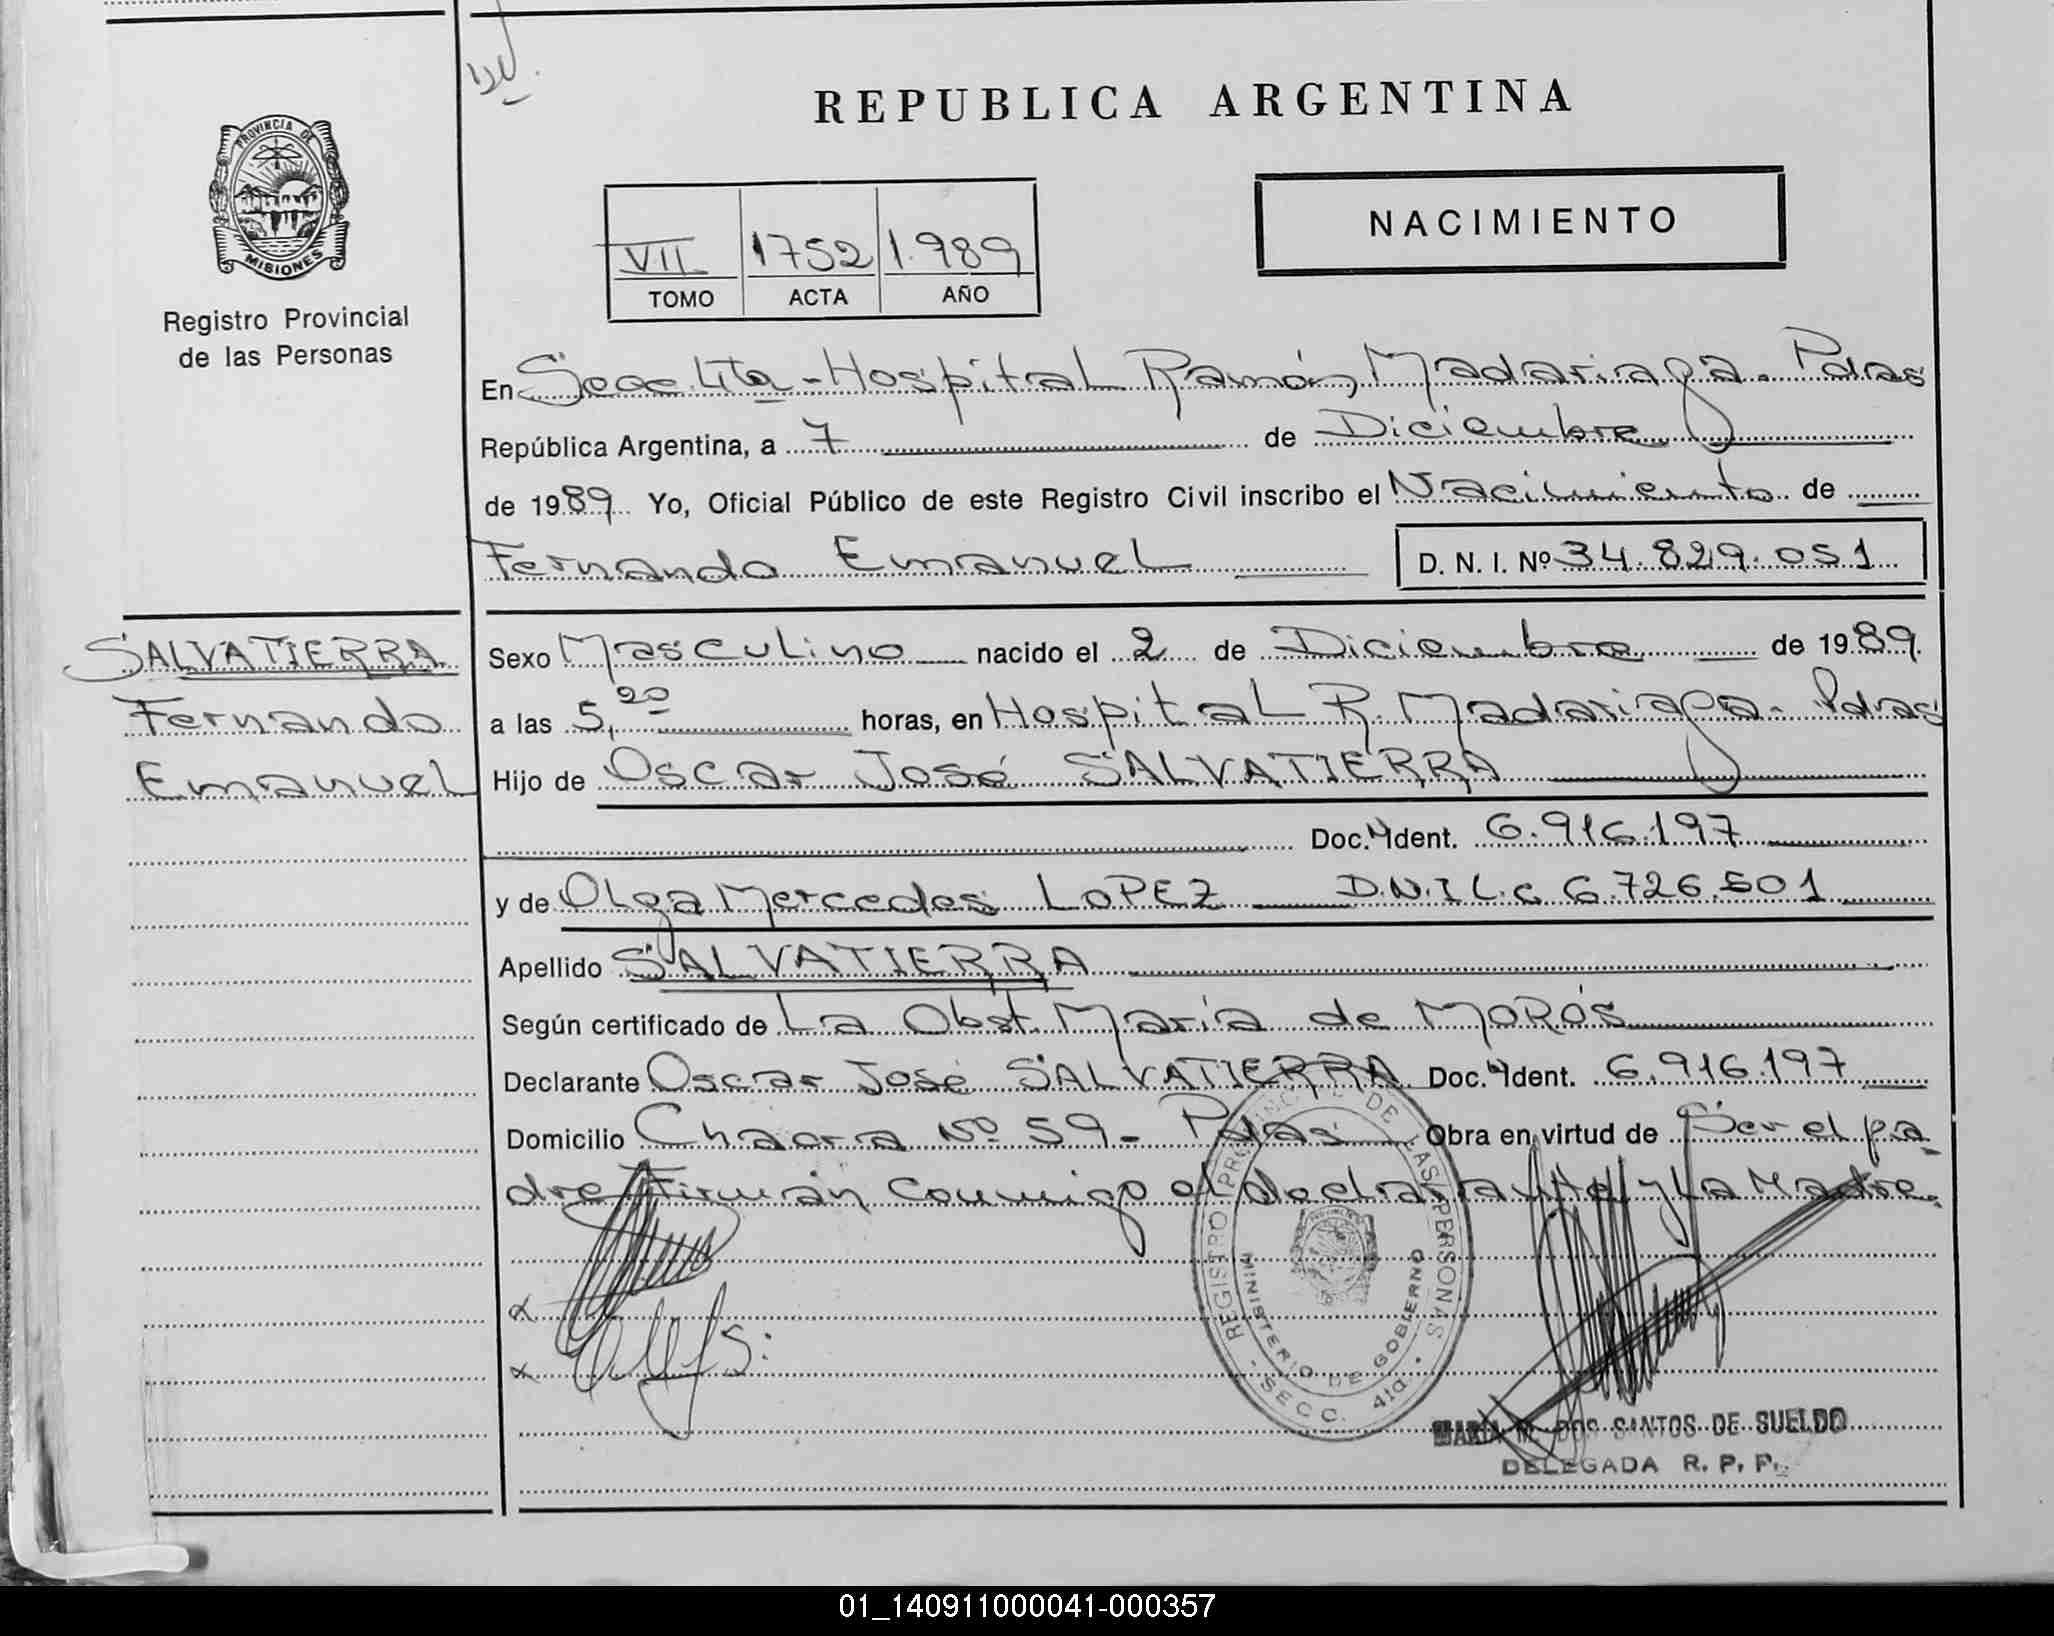 REPUBLICA ARGENTINA
PROVINCIA DE
MISIONES
Registro Provincial
de las Personas
VII 1752 1.989
TOMO ACTA AÑO
NACIMIENTO
En Secc 4ta - Hospital Ramón Madariaga. Pdas
República Argentina, a 7 de Diciembre
de 1989 Yo, Oficial Público de este Registro Civil inscribo el Nacimiento de
Fernando Emanuel D. N. I. Nº 34.829.051
SALVATIERRA
Fernando
Emanuel
Sexo Masculino nacido el 2 de Diciembre de 1989.
a las 5,20 horas, en Hospital R. Madariaga. Pdas
Hijo de Oscar José SALVATIERRA
Doc. Ident. 6.916.197
y de Olga Mercedes LOPEZ D.N.I L.C 6.726.501
Apellido SALVATIERRA
Según certificado de La Obst. María de MOROS
Declarante Oscar José SALVATIERRA Doc. Ident. 6.916.197
Domicilio Chacra Nº 59 - Pdas Obra en virtud de Ser el pa-
dre Firman conmigo el declarante y La Madre.
REGISTRO PROVINCIAL DE LAS PERSONAS
MINISTERIO DE GOBIERNO
SECC. 4ta
MARIA M. DOS SANTOS DE SUELDO
DELEGADA R. P. P.
01_140911000041-000357